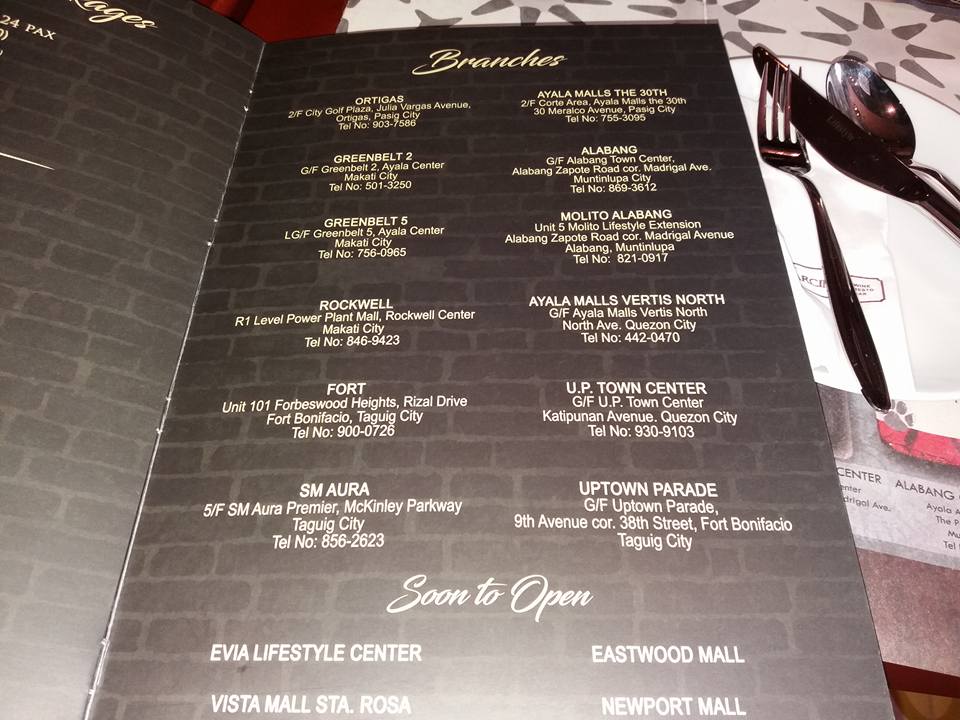 24 PAX
Branches
ORTIGAS
2/F City Golf Plaza, Julia Vargas Avenue,
Ortigas, Pasig City
Tel No: 903-7586
GREENBELT 2
G/F Greenbelt 2, Ayala Center
Makati City
Tel No: 501-3250
GREENBELT 5
LG/F Greenbelt 5, Ayala Center
Makati City
Tel No: 756-0965
ROCKWELL
R1 Level Power Plant Mall, Rockwell Center
Makati City
Tel No: 846-9423
FORT
Unit 101 Forbeswood Heights, Rizal Drive
Fort Bonifacio, Taguig City
Tel No: 900-0726
SM AURA
5/F SM Aura Premier, McKinley Parkway
Taguig City
Tel No: 856-2623
AYALA MALLS THE 30TH
2/F Corte Area, Ayala Malls the 30th
30 Meralco Avenue, Pasig City
Tel No: 755-3095
ALABANG
G/F Alabang Town Center,
Alabang Zapote Road cor. Madrigal Ave.
Muntinlupa City
Tel No: 869-3612
MOLITO ALABANG
Unit 5 Molito Lifestyle Extension
Alabang Zapote Road cor. Madrigal Avenue
Alabang, Muntinlupa
Tel No: 821-0917
AYALA MALLS VERTIS NORTH
G/F Ayala Malls Vertis North
North Ave. Quezon City
Tel No: 442-0470
U.P. TOWN CENTER
G/F U.P. Town Center
Katipunan Avenue. Quezon City
Tel No: 930-9103
UPTOWN PARADE
G/F Uptown Parade,
9th Avenue cor. 38th Street, Fort Bonifacio
Taguig City
Soon to Open
EVIA LIFESTYLE CENTER
EASTWOOD MALL
VISTA MALL STA. ROSA
NEWPORT MALL
CENTER
Ave.
ALABANG
Ayala
The